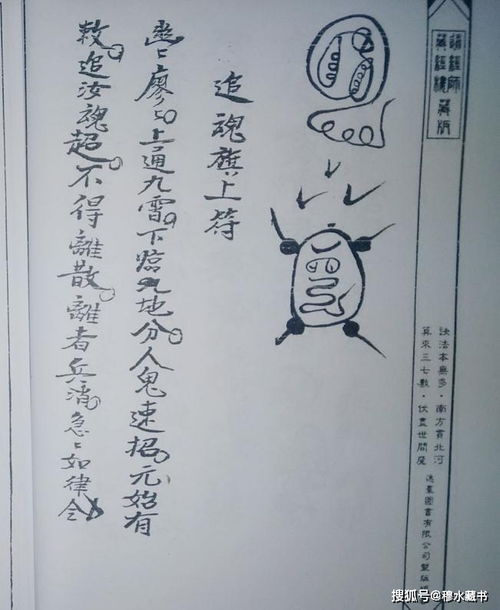 訣法本無多・南方貫北河
算來三七數・伏盡世間魔
逸羣圖書有限公司製版
追魂旗上符
〻廖〻上通九霄下臨九地分人鬼速招元始有
敕追汝魂超不得離散離者兵消急〻如律令
搜狐号@穆水藏书